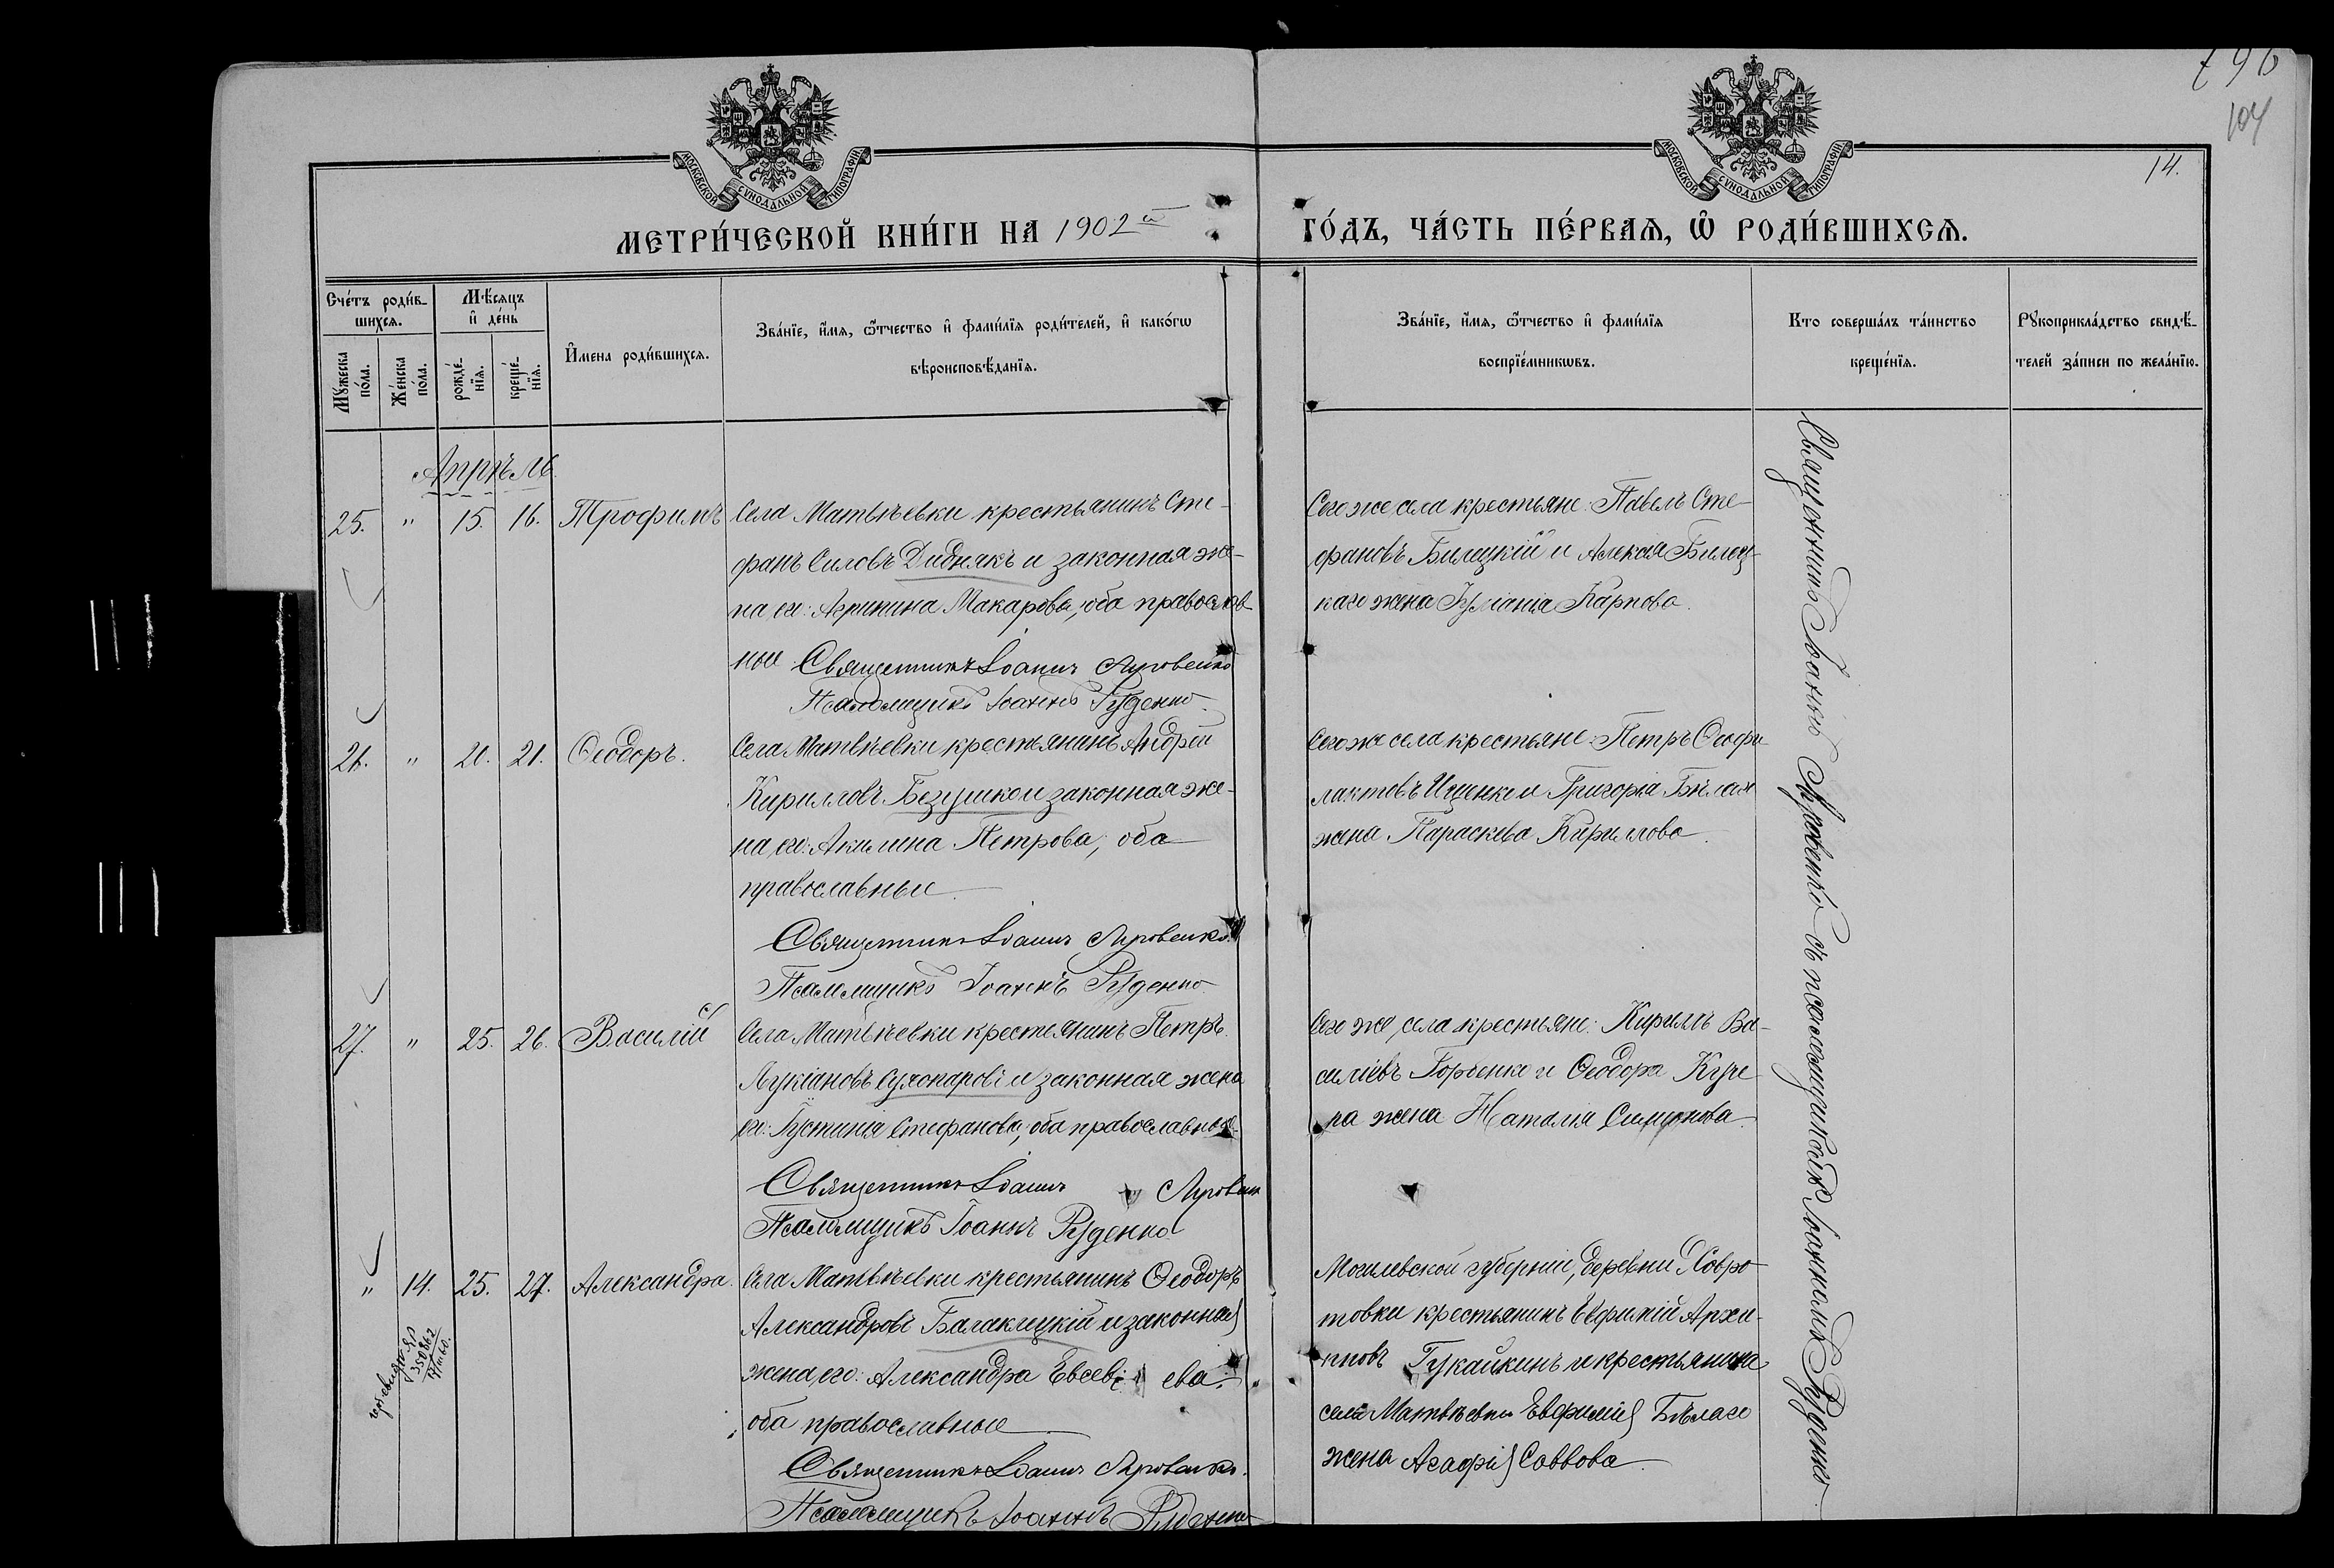 796
104
14.
МОСКОВСКОЙ СУНОДАЛЬНОЙ ТИПОГРАФІИ
МОСКОВСКОЙ СУНОДАЛЬНОЙ ТИПОГРАФІИ
МЕТРИ́ЧЕСКОЙ КНИ́ГИ НА 1902 й
ГО́ДЪ, ЧА́СТЬ ПЕ́РВАѦ, Ѡ҆ РОДИ́ВШИХСѦ.
Сче́тъ роди́в-
шихсѧ.
Мꙋ́жеска по́ла.
Же́нска по́ла.
Мѣ́сѧцъ
и҆ де́нь
рожде́-нїѧ.
креще́-нїѧ.
И҆мена роди́вшихсѧ.
Зва́нїе, и҆́мѧ, ѻ҆́тчество и҆ фами́лїѧ роди́телей, и҆ како́гѡ
вѣроисповѣ́данїѧ.
Зва́нїе, и҆́мѧ, ѻ҆́тчество и҆ фами́лїѧ
воспрїе́мникѡвъ.
Кто соверша́лъ та́инство
креще́нїѧ.
Рꙋкоприкла́дство свидѣ́-
телей за́писи по жела́нїю.
Апрѣль
25. " 15. 16. Трофимъ
Села Матвѣевки крестьянинъ Сте-
фанъ Силовъ Дидникъ и законная же-
на его: Агрипина Макарова, оба православ
ные
Священникъ Іоаннъ Яровенко
Псаломщикъ Іоаннъ Руденко.
Сего же села крестьяне: Павелъ Сте-
фановъ Билецкій и Алексія Билец-
каго жена Іуліанія Карпова.
26. " 20. 21. Ѳеодоръ.
Села Матвѣевки крестьянинъ Андрей
Кирилловъ Безушко и законная же-
на его: Акилина Петрова, оба
православные
Священникъ Іоаннъ Яровенко
Псаломщикъ Іоаннъ Руденко
Сего же села крестьяне: Петръ Ѳеофи
лактовъ Ищенко и Григорія Бѣлая
жена Параскева Кириллова.
27. " 25. 26. Василій
Села Матвѣевки крестьянинъ Петръ
Лукіановъ Сухопаровъ и законная жена
его: Іустинія Стефанова, оба православные
Священникъ Іоаннъ Яровенк
Псаломщикъ Іоаннъ Руденко
Сего же села крестьяне: Кириллъ Ва-
силіевъ Горбенко и Ѳеодора Куче
ра жена Наталія Симонова.
" 14. 25. 27. Александра.
Села Матвѣевки крестьянинъ Ѳеодоръ
Александровъ Балаклицкій и законная
жена его: Александра Евсевіева
оба православные
Священникъ Іоаннъ Яровенко.
Псаломщикъ Іоаннъ Руденко
Могилевской губерніи, деревни Ховро
товки крестьянинъ Евфимій Архи-
повъ Гукайкинъ и крестьянина
села Матвѣевки Евфимія Бѣлаго
жена Агафія Саввова
Священникъ Іоаннъ Яровенко съ псаломщикомъ Іоанномъ Руденко